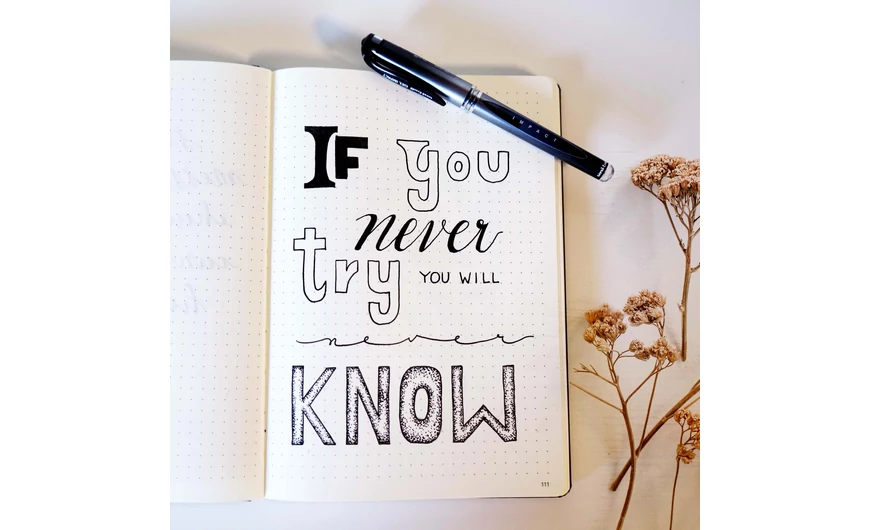 IF you
never
try YOU WILL
never
KNOW
IMPACT
111